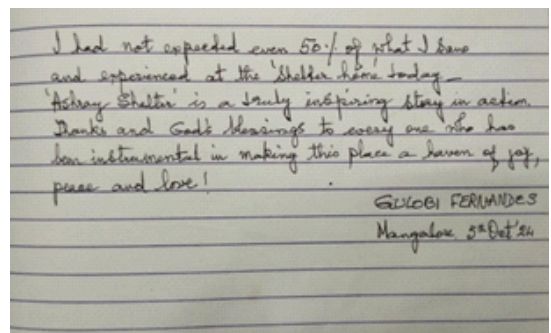 I had not expected even 50% of what I saw
and experienced at the 'Shelter home' today –
'Ashray Shelter' is a truly inspiring story in action.
Thanks and God's blessings to every one who has
been instrumental in making this place a haven of joy,
peace and love!
FERNANDES
Mangalore Oct '24